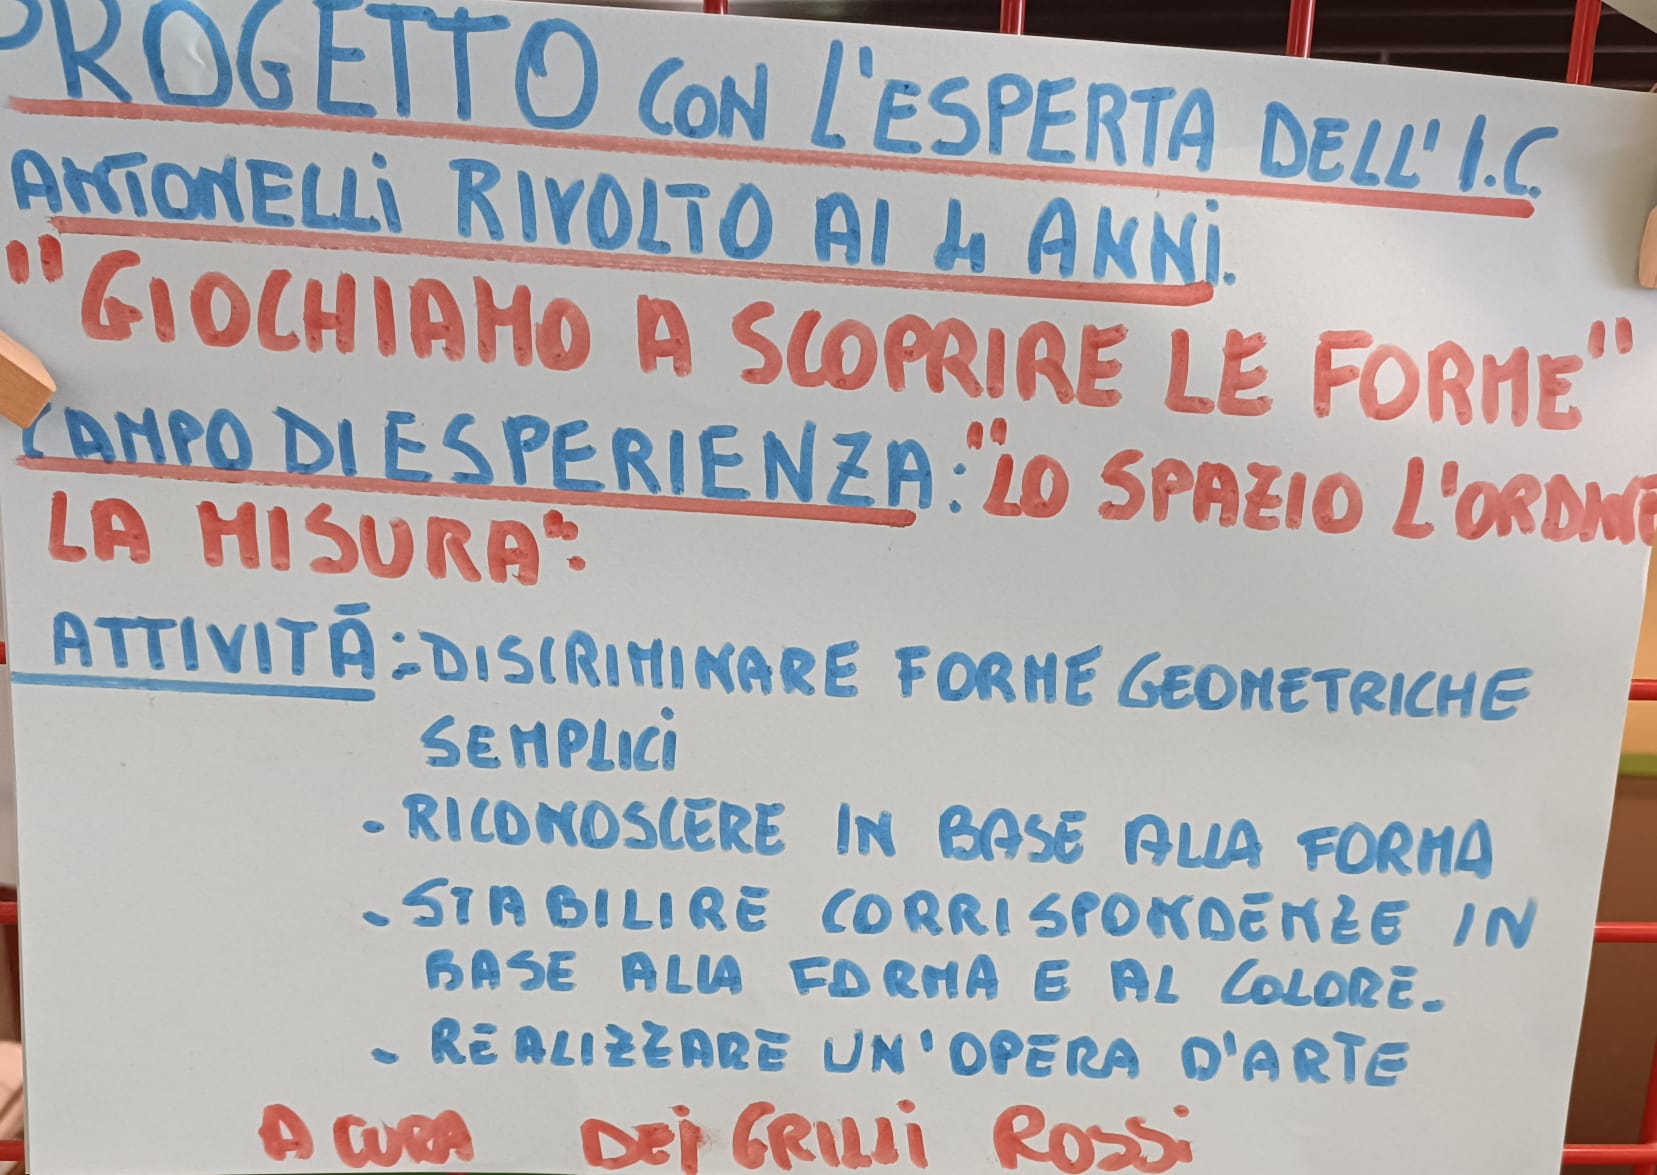 PROGETTO CON L'ESPERTA DELL'I.C.
ANTONELLI RIVOLTO AI 4 ANNI.
"GIOCHIAMO A SCOPRIRE LE FORME"
CAMPO DI ESPERIENZA: "LO SPAZIO L'ORDINE
LA MISURA":
ATTIVITÀ:-DISCRIMINARE FORME GEOMETRICHE
SEMPLICI
- RICONOSCERE IN BASE ALLA FORMA
- STABILIRE CORRISPONDENZE IN
BASE ALLA FORMA E AL COLORE.
- REALIZZARE UN'OPERA D'ARTE
A CURA DEI GRILLI ROSSI